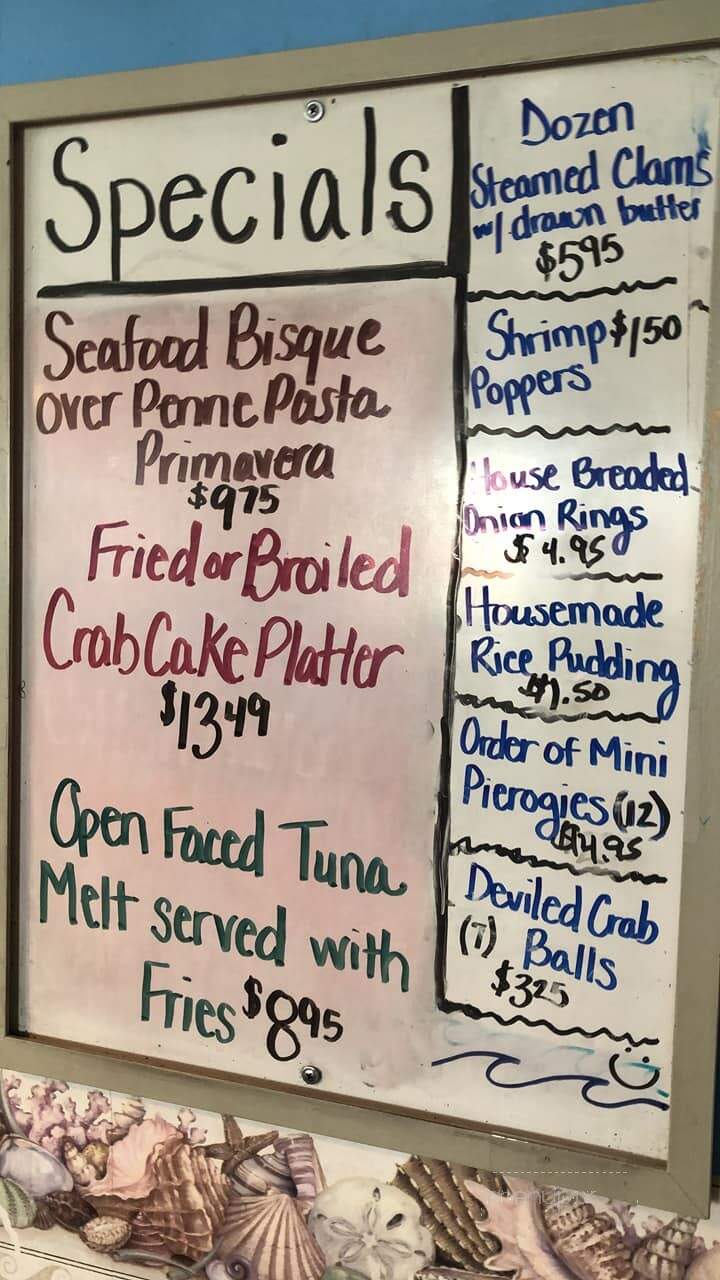 Specials
Seafood Bisque
over Penne Pasta
Primavera
$9.75
Fried or Broiled
Crab Cake Platter
$13.49
Open Faced Tuna
Melt served with
Fries $8.95
Dozen
Steamed Clams
w/ drawn butter
$5.95
Shrimp $1.50
Poppers
House Breaded
Onion Rings
$4.95
Housemade
Rice Pudding
$1.50
Order of Mini
Pierogies (12)
$4.95
Deviled Crab
(7) Balls
$3.25